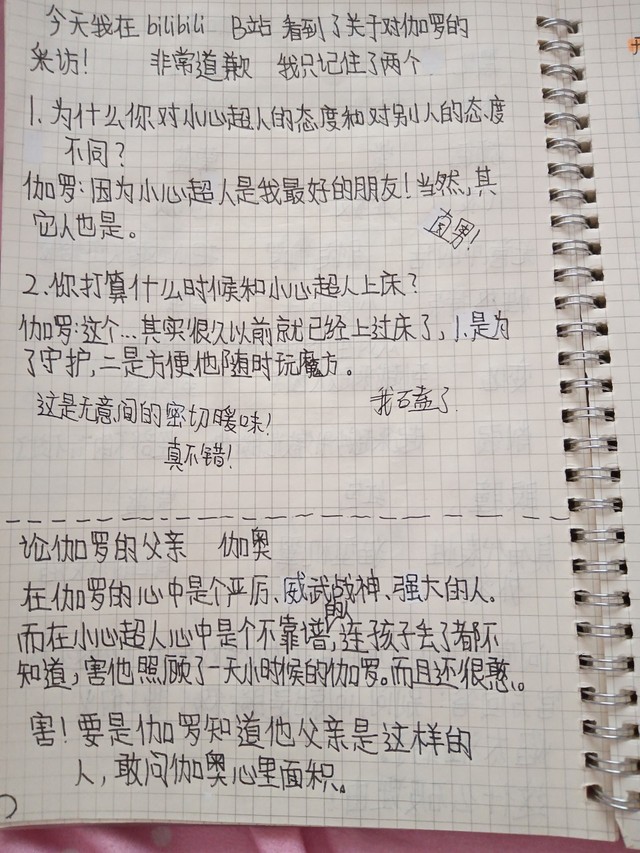 今天我在bilibili B站看到了关于对伽罗的
采访! 非常道歉 我只记住了两个
1.为什么你对小心超人的态度和对别人的态度
不同?
伽罗:因为小心超人是我最好的朋友!当然,其
它人也是。
直男!
2.你打算什么时候和小心超人上床?
伽罗:这个...其实很久以前就已经上过床了,1.是为
了守护,二是方便他随时玩魔方。
这是无意间的密切暖味!
我石斋了
真不错!
论伽罗的父亲 伽奥
在伽罗的心中是个严厉、威武战神、强大的人。
而在小心超人心中是个不靠谱的人,连孩子丢了都不
知道,害他照顾了一天小时候的伽罗。而且还很憨。
害!要是伽罗知道他父亲是这样的
人,敢问伽奥心里面积。